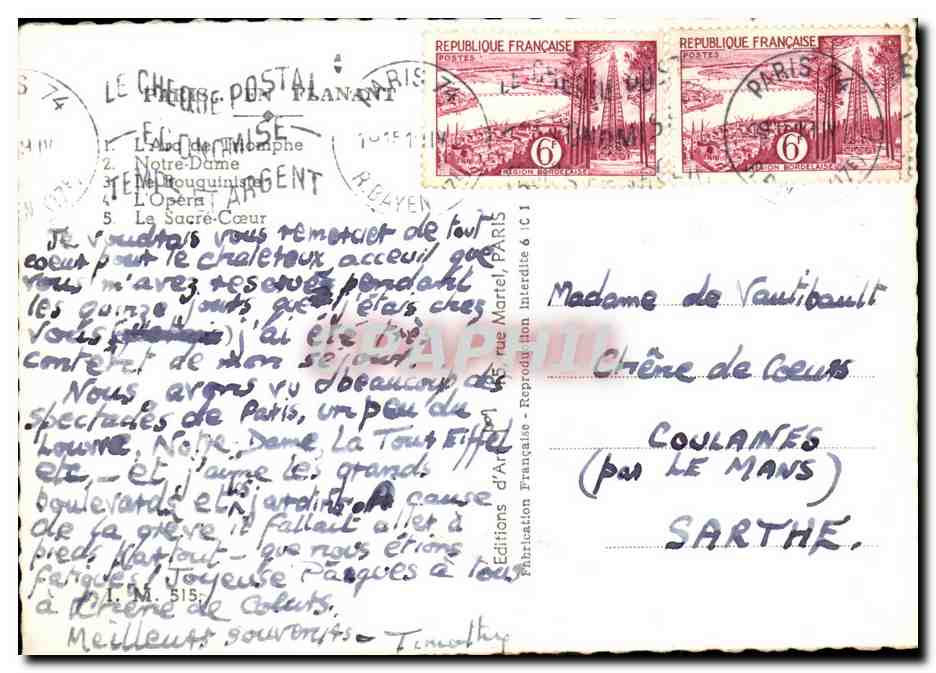 PARIS EN FLANANT
1. L'Arc de Triomphe
2. Notre-Dame
3. Le Bouquiniste
4. L'Opéra
5. Le Sacré-Cœur
LE CHEQUE POSTAL
ECONOMISE
TEMPS ET ARGENT
PARIS 74
R. DAYEN (17E)
REPUBLIQUE FRANÇAISE
POSTES
6F
REGION BORDELAISE
REPUBLIQUE FRANÇAISE
POSTES
6F
REGION BORDELAISE
PARIS 74
Je voudrais vous remercier de tout
coeur pour le chalereux acceuil que
vous m'avez reservé pendant
les quinze jours que j'étais chez
vous j'ai été très
content de mon sejour.
Nous avons vu beaucoup de
spectacles de Paris, un peu du
Louvre, Notre Dame, La Tour Eiffel
etc, - et j'aime les grands
boulevards et les jardins. A cause
de la grève il fallait aller à
pieds partout - que nous étions
fatigués! Joyeuse Pâques à tous
à Chêne de Coeurs.
Meilleurs souvenirs - Timothy
I. M. 515
Editions d'Art 15, rue Martel, PARIS
Fabrication Française - Reproduction Interdite 6 IC 1
Madame de Vautibault
Chêne de Coeurs
COULAINES
(par LE MANS)
SARTHE.
CPAPHIL